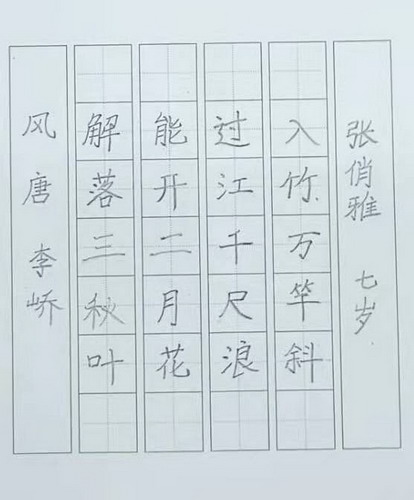 风 唐 李峤
解落三秋叶
能开二月花
过江千尺浪
入竹万竿斜
张俏雅 七岁